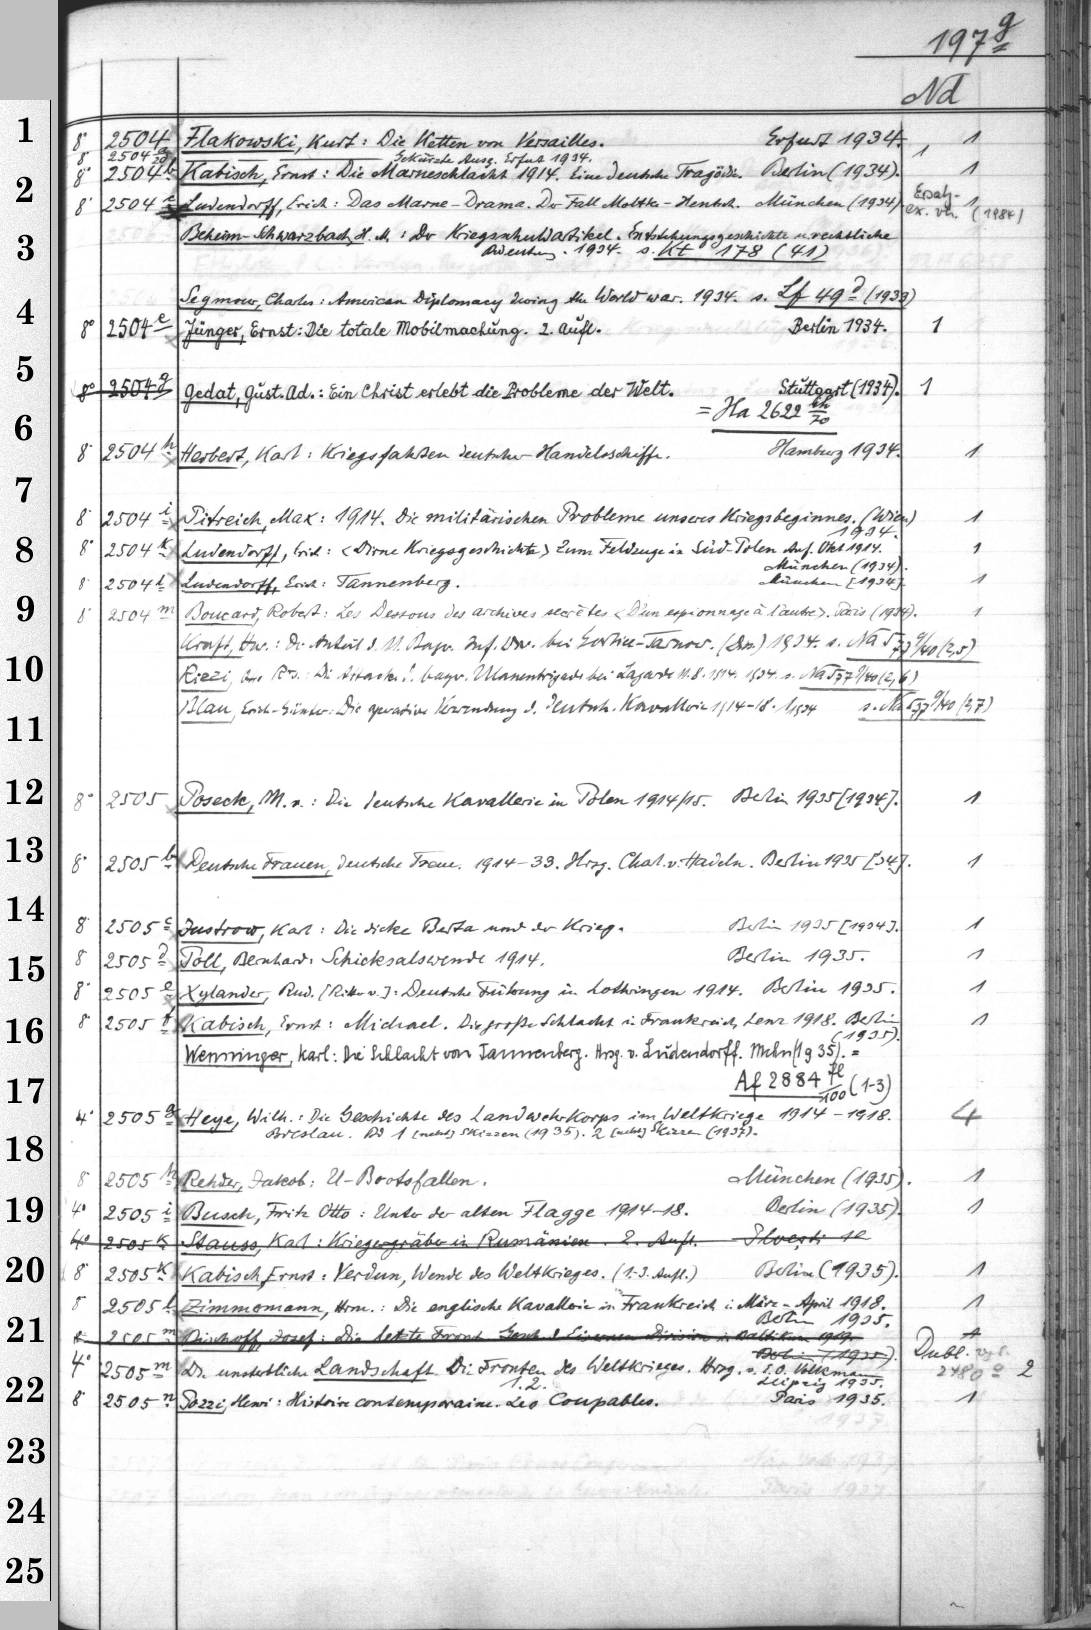 197 g
Nd
1
8° 2504 Flakowski, Kurt: Die Ketten von Versailles. Erfurt 1934. 1
8° 2504 a/20 Gekürzte Ausg. Erfurt 1934. 1
8° 2504 b Kabisch, Ernst: Die Marneschlacht 1914. Eine deutsche Tragödie. Berlin (1934). 1
2
8° 2504 c Ludendorff, Erich: Das Marne-Drama. Der Fall Moltke-Hentsch. München (1934). Ersatz-ex. vh. (1984) 1
Beheim-Schwarzbach, H. M.: Der Kriegsschuldartikel. Entstehungsgeschichte u. rechtliche
3
Bedeutung. 1934. s. Kt 178 (41)
Seymour, Charles: American Diplomacy during the World war. 1934. s. Lf 49 d (1933)
4
8° 2504 e Jünger, Ernst: Die totale Mobilmachung. 2. Aufl. Berlin 1934. 1
5
8° 2504 g Gedat, Gust. Ad.: Ein Christ erlebt die Probleme der Welt. Stuttgart (1934). 1
= Ha 2622 hh/70
6
8° 2504 h Herbert, Karl: Kriegsfahrten deutscher Handelsschiffe. Hamburg 1934. 1
7
8° 2504 i Pitreich, Max: 1914. Die militärischen Probleme unseres Kriegsbeginnes. (Wien) 1
1934.
8
8° 2504 k Ludendorff, Erich: <Dirne Kriegsgeschichte> Zum Feldzuge in Süd-Polen Anf. Okt 1914. 1
München (1934).
8° 2504 l Ludendorff, Erich: Tannenberg. München [1934]. 1
9
8° 2504 m Boucard, Robert: Les Dessous des archives secrètes <D'un espionnage à l'autre>. Paris (1934). 1
Kraft, : Der Anteil d. 11. Bayr. Inf. Div. bei Gorlice-Tarnow. 1934. s. Na 537 g/40 (2,5)
10
Riezi, : Die Attacke d. bayr. Ulanenbrigade bei Lagarde 11. 8. 1914. 1934. s. Na 537 g/40 (2,6)
Blau, Erich-Günter: Die operative Verwendung d. deutsch. Kavallerie 1914-18. 1934 s. Na 537 g/40 (2,7)
11
12
8° 2505 Poseck, M. v.: Die deutsche Kavallerie in Polen 1914/15. Berlin 1935 [1934]. 1
13
8° 2505 b Deutsche Frauen, deutsche Treue. 1914-33. Hrsg. Charl. v. Hadeln. Berlin 1935 [34]. 1
14
8° 2505 c Justrow, Karl: Die dicke Berta und der Krieg. Berlin 1935 [1934]. 1
15
8° 2505 d Poll, Bernhard: Schicksalswende 1914. Berlin 1935. 1
8° 2505 e Xylander, Rud. [Ritter v.]: Deutsche Führung in Lothringen 1914. Berlin 1935. 1
16
8° 2505 f Kabisch, Ernst: Michael. Die große Schlacht in Frankreich, Lenz 1918. Berlin 1
(1935).
Wenninger, Karl: Die Schlacht von Tannenberg. Hrsg. v. Ludendorff. Mchn (1935). =
17
Af 2884 fl/100 (1-3)
4° 2505 g Heye, Wilh.: Die Geschichte des Landwehrkorps im Weltkriege 1914-1918. 4
Breslau. Bd 1 [nebst] Skizzen (1935). 2 [nebst] Skizzen (1937).
18
8° 2505 h Rehder, Jakob: U-Bootsfallen. München (1935). 1
19
4° 2505 i Busch, Fritz Otto: Unter der alten Flagge 1914-18. Berlin (1935). 1
4° 2505 k Stauss, Karl: Kriegergräber in Rumänien. 2. Aufl.
20
8° 2505 k Kabisch, Ernst: Verdun, Wende des Weltkrieges. (1-3. Aufl.) Berlin (1935). 1
8° 2505 l Zimmemann, Hrm.: Die englische Kavallerie in Frankreich i. März-April 1918. 1
Berlin 1935.
21
2505 m Bischoff, Josef: Die letzte Front. Gesch. d. Eisernen Division im Baltikum 1919. 1
Berlin (1935). Dubl. vgl.
4° 2505 m Der unsterbliche Landschaft. Die Fronten des Weltkrieges. Hrsg. v. E. O. Volkmann. 2480 a 2
22
1. 2. Leipzig 1935.
8° 2505 n Pozzi, Henri: Histoire contemporaine. Les Coupables. Paris 1935. 1
23
24
25